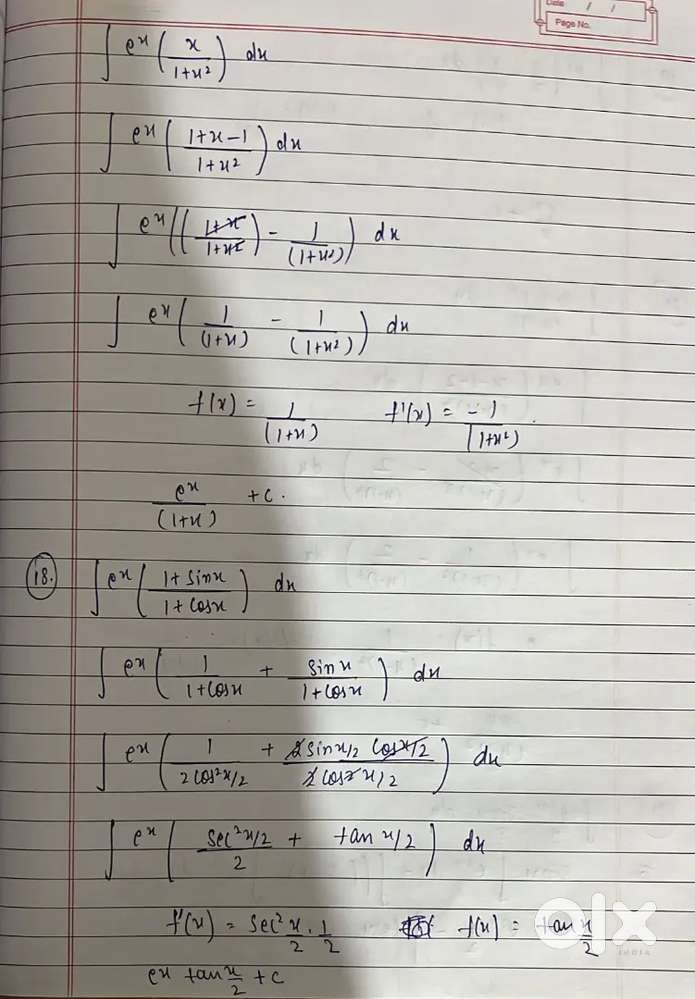 Date / /
Page No.
∫ e^x (x/(1+x²)) dx
∫ e^x ((1+x-1)/(1+x²)) dx
∫ e^x (((1+x)/(1+x²)) - 1/(1+x²)) dx
∫ e^x (1/(1+x) - 1/(1+x²)) dx
f(x) = 1/(1+x) f'(x) = -1/(1+x²).
e^x/(1+x) + c.
18. ∫ e^x ((1+sinx)/(1+cosx)) dx
∫ e^x (1/(1+cosx) + sinx/(1+cosx)) dx
∫ e^x (1/(2cos²x/2) + (2sinx/2 cosx/2)/(2cos²x/2)) dx
∫ e^x ((sec²x/2)/2 + tan x/2) dx
f'(x) = sec² x/2 · 1/2 f(x) = tan x/2
e^x tan x/2 + c
olx
INDIA